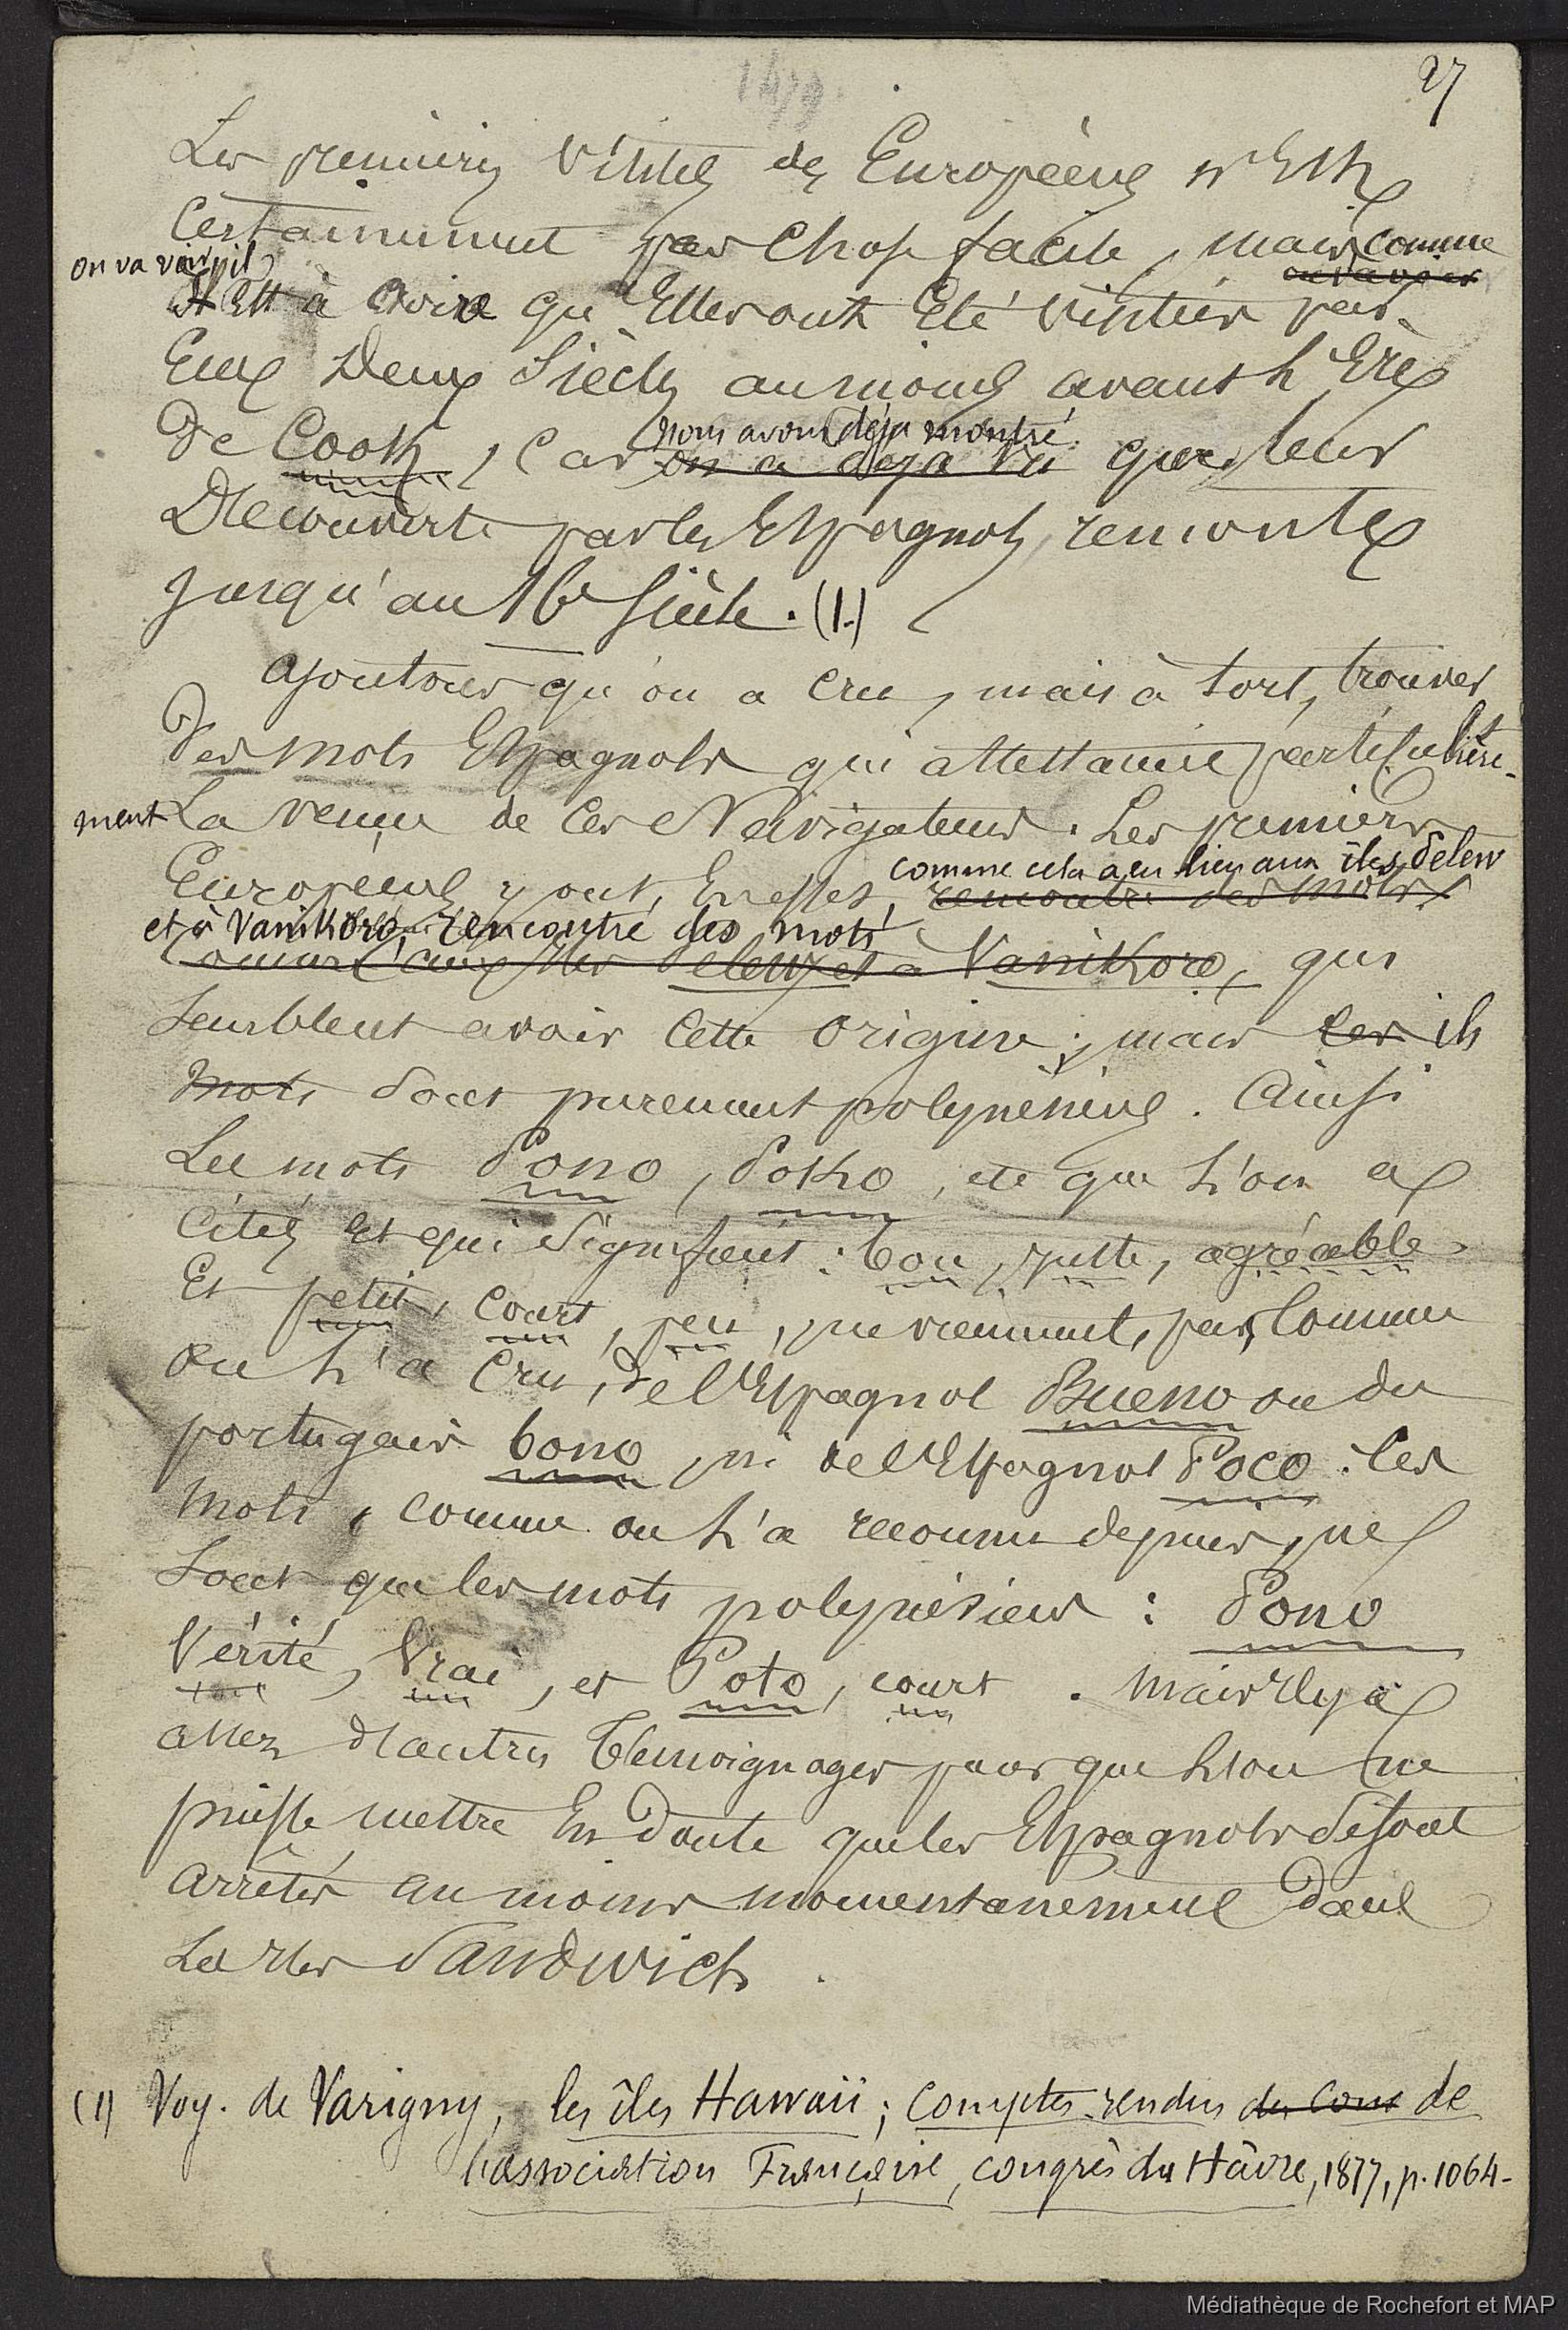 27
Les premières visites des Européens n'est
certainement pas chose facile, mais comme
on va voir, il
est à croire qu'Elles ont Eté visitées par
Eux Deux Siècles au moins avant l'Ere
De Cook, car nous avons déjà montré que leur
on a déjà vu
Découverte par les Espagnols, remonte
jusqu'au 16e siècle. (1.)
ajoutons qu'on a cru, mais à tort, trouver
des mots Espagnols qui attestaient particulière-
ment la venue de ces Navigateurs. Les premiers
comme cela a eu lieu aux îles Pelew
Européens y ont, En effet, rencontré des mots
et à Vanikoro, rencontré des mots
comme aux Iles Pelew et à Vanikoro, qui
semblent avoir cette origine ; mais ces ils
mots sont purement polynésiens. Ainsi
Les mots Pono, Poko, etc que l'on a
cités et qui signifient : bon, juste, agréable
Et petit, court, peu, ne viennent, pas, comme
on l'a cru, de l'Espagnol Bueno ou du
portugais bono, ni de l'Espagnol Poco : ces
mots, comme on l'a reconnu depuis, ne
sont que les mots polynésiens : Pono
Vérité, Vrai, et Poto, court. Mais Il y a
assez d'autres témoignages pour que l'on ne
puisse mettre En Doute que les Espagnols se sont
arrêtés au moins momentanement dans
Les Iles Sandwich.
(1) Voy. de Varigny, les îles Hawaii ; comptes-rendus du Con de
l'association Française, congrès du Hâvre, 1877, p. 1064-
Médiathèque de Rochefort et MAP